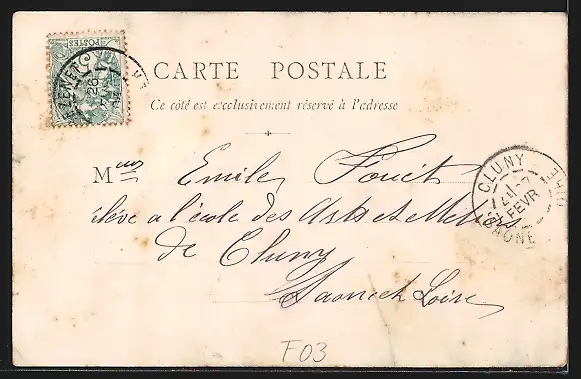 POSTES
5
28
CARTE POSTALE
Ce côté est exclusivement réservé à l'adresse
Mrs Emile Fouet
élève a l'école des Arts et Metiers
de Cluny
Saone et Loire
CLUNY
FEVR
SAONE
F03